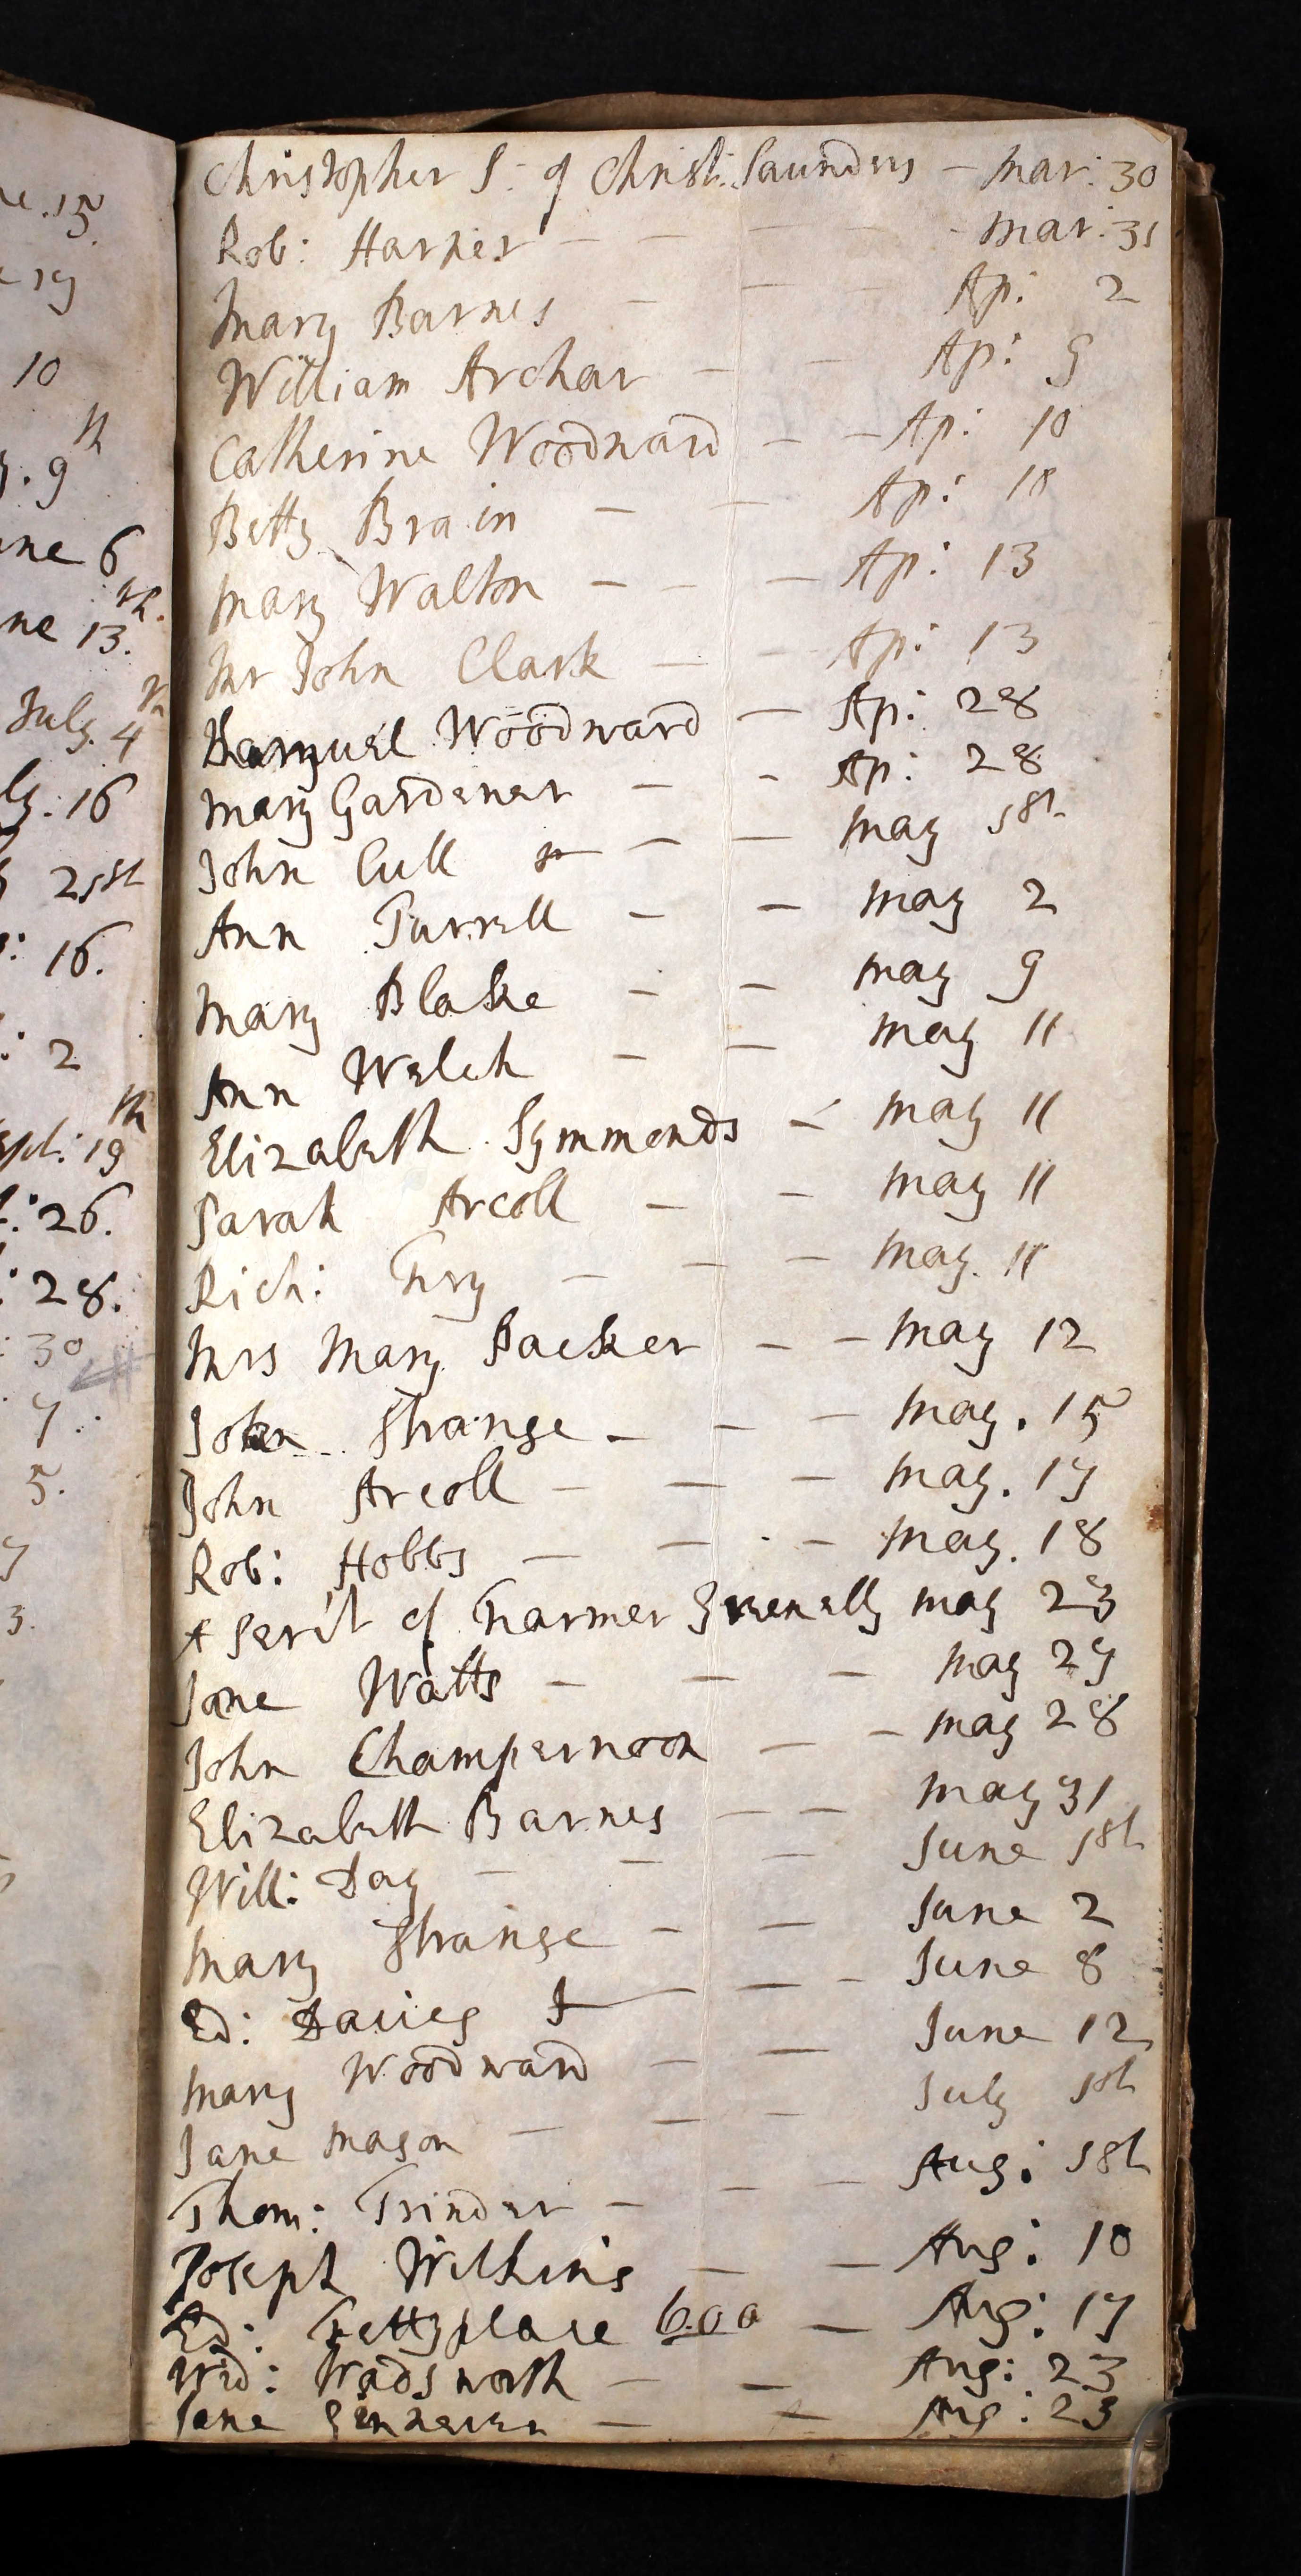 ne. 15.
19
10
9th
June 6
June 13th.
July. 4th
16
21st
16.
2
Sept: 19th
26.
28.
30
7.
5.
7
3.
Christopher S: of Christ: Saunders - Mar: 30
Rob: Harper - - - - Mar: 31
Mary Barnes - - - Ap: 2
William Archar - - Ap: 9
Catherine Woodward - - Ap: 10
Betty Brain - - Ap: 10
Mary Walton - - - Ap: 13
Mr John Clark - - Ap: 13
Samuel Woodward - Ap: 28
Mary Gardener - - Ap: 28
John Cull - - May 1st
Ann Turrell - - May 2
Mary Blake - - May 9
Ann Welch - - May 11
Elizabeth Symmonds - May 11
Sarah Arcoll - - May 11
Rich: Fry - - - May. 11
Mrs Mary Packer - - May 12
John Strange - - - May. 15
John Arcoll - - - May. 17
Rob: Hobbs - - - May. 18
A Servt of Farmer May 23
Jane Watts - - - May 27
John Champernoon - - May 28
Elizabeth Barnes - - May 31
Will: Day - - - June 1st
Mary Strange - - June 2
Ed: Davies - - June 8
Mary Woodward - - June 12
Jane Mason - - - July 1st
Thom: Trinder - - - Aug: 1st
Joseph Wilkins - - Aug: 10
Ed: Fettyplace 600 - Aug: 17
Wid: Wadsworth - - Aug: 23
Jane - - Aug: 23